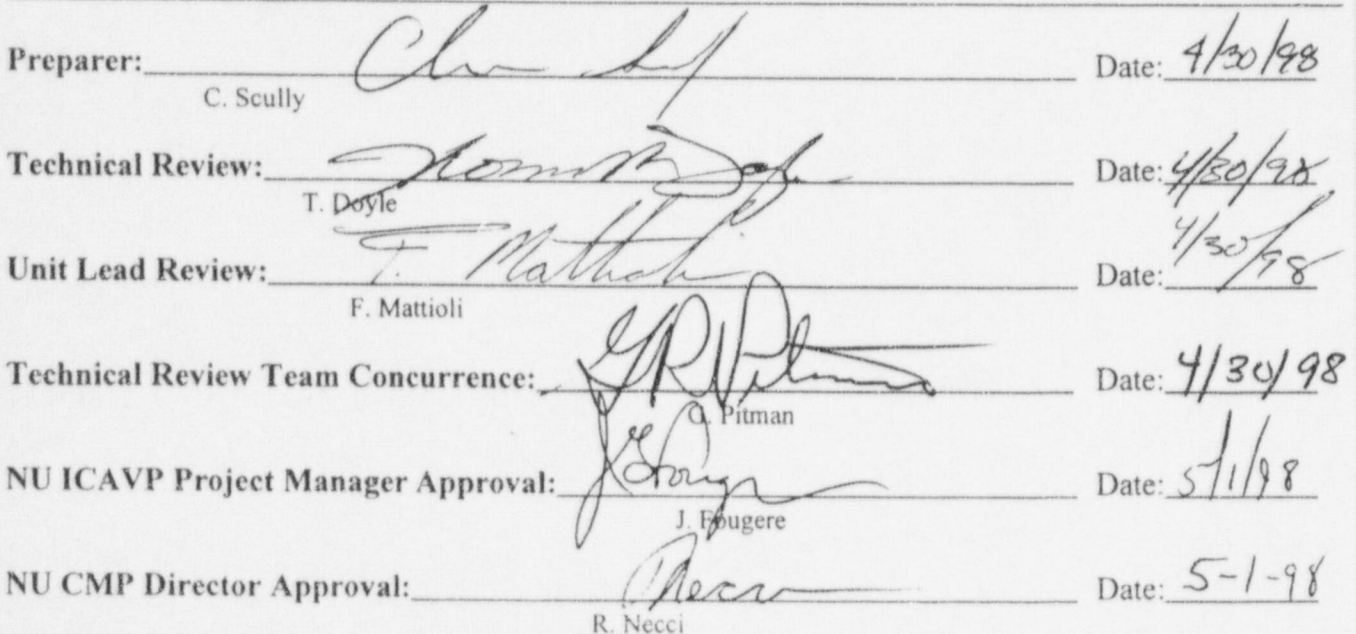 Preparer: Date: 4/30/98
C. Scully
Technical Review: Date: 4/30/98
T. Doyle
Unit Lead Review: F. Mattioli Date: 4/30/98
F. Mattioli
Technical Review Team Concurrence: GR Pitman Date: 4/30/98
G. Pitman
NU ICAVP Project Manager Approval: Date: 5/1/98
J. Fougere
NU CMP Director Approval: Date: 5-1-98
R. Necci